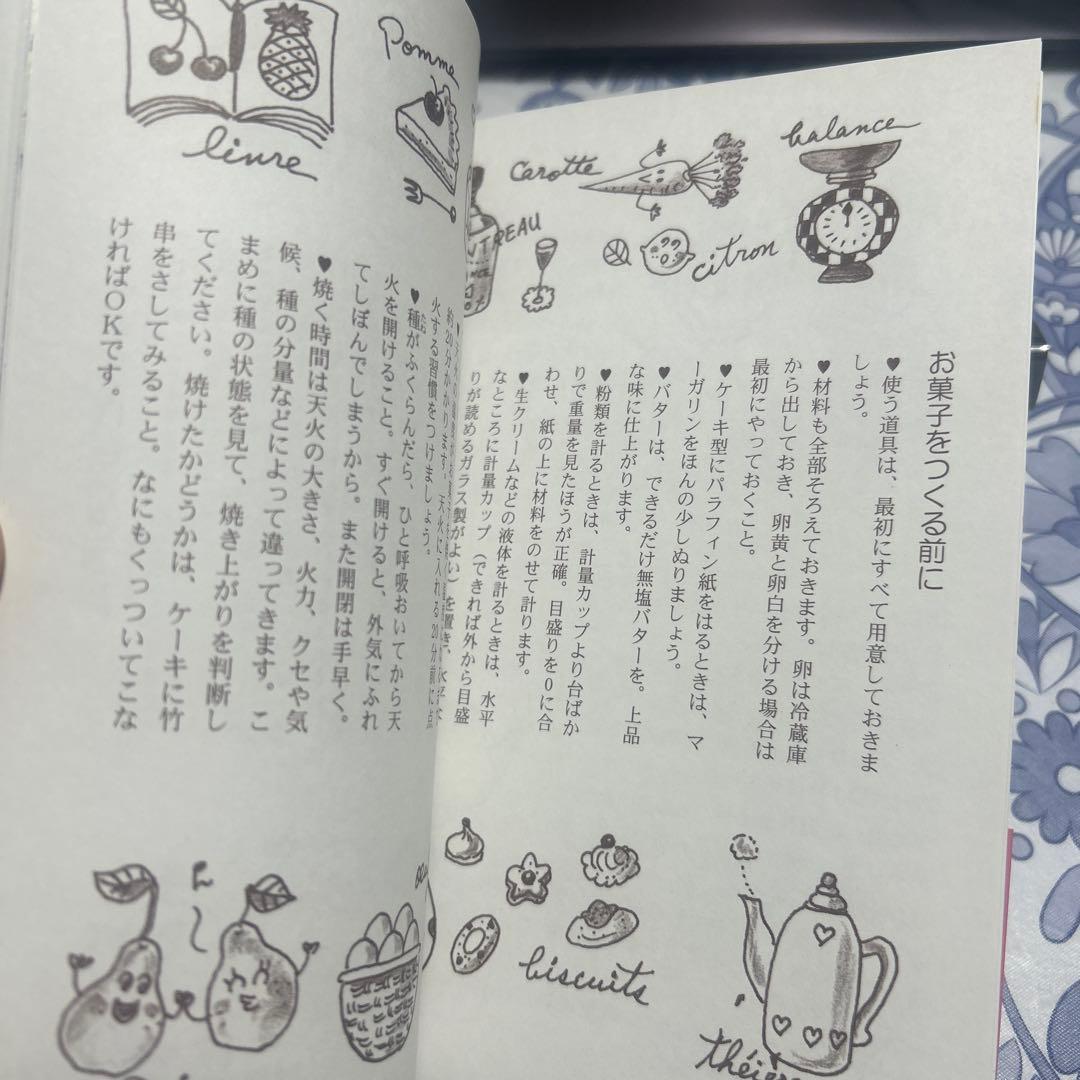 balance
carotte
citron
お菓子をつくる前に
♥使う道具は、最初にすべて用意しておきま
しょう。
♥材料も全部そろえておきます。卵は冷蔵庫
から出しておき、卵黄と卵白を分ける場合は
最初にやっておくこと。
♥ケーキ型にパラフィン紙をはるときは、マ
ーガリンをほんの少しぬりましょう。
♥バターは、できるだけ無塩バターを。上品
な味に仕上がります。
♥粉類を計るときは、計量カップより台ばか
りで重量を見たほうが正確。目盛りを0に合
わせ、紙の上に材料をのせて計ります。
♥生クリームなどの液体を計るときは、水平
なところに計量カップ（できれば外から目盛
りが読めるガラス製がよい）を置き、
biscuits
Pomme
livre
約20分かかります。天火に入れる20分前に点
火する習慣をつけましょう。
♥種がふくらんだら、ひと呼吸おいてから天
火を開けること。すぐ開けると、外気にふれ
てしぼんでしまうから。また開閉は手早く。
♥焼く時間は天火の大きさ、火力、クセや気
候、種の分量などによって違ってきます。こ
まめに種の状態を見て、焼き上がりを判断し
てください。焼けたかどうかは、ケーキに竹
串をさしてみること。なにもくっついてこな
ければOKです。